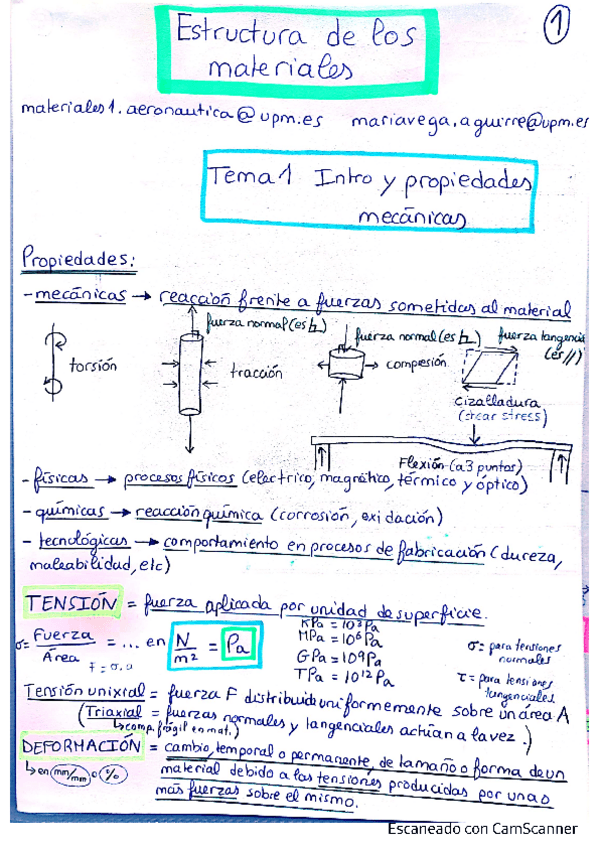 1
Estructura de los
materiales
materiales1.aeronautica@upm.es mariavega.aguirre@upm.es
Tema 1 Intro y propiedades
mecánicas
Propiedades:
- mecánicas → reacción frente a fuerzas sometidas al material
fuerza normal (es ⊥)
fuerza normal (es ⊥)
fuerza tangencia
(es //)
torsión
tracción
compresión
cizalladura
(stear stress)
Flexión (a 3 puntos)
- físicas → procesos físicos (electrico, magnético, térmico y óptico)
- químicas → reacción química (corrosión, oxidación)
- tecnológicas → comportamiento en procesos de fabricación (dureza,
maleabilidad, etc)
TENSIÓN = fuerza aplicada por unidad de superficie.
σ = Fuerza / Área = ... en N / m² = Pa
KPa = 10³ Pa
MPa = 10⁶ Pa
GPa = 10⁹ Pa
TPa = 10¹² Pa
σ = para tensiones
normales
τ = para tensiones
tangenciales
Tensión unixial = fuerza F distribuida uniformemente sobre un área A
(Triaxial = fuerzas normales y tangenciales actúan a la vez.)
↳ comp. frágil en mat.)
DEFORMACIÓN = cambio, temporal o permanente, de tamaño o forma de un
↳ en mm/mm o %
material debido a las tensiones producidas por una o
más fuerzas sobre el mismo.
Escaneado con CamScanner